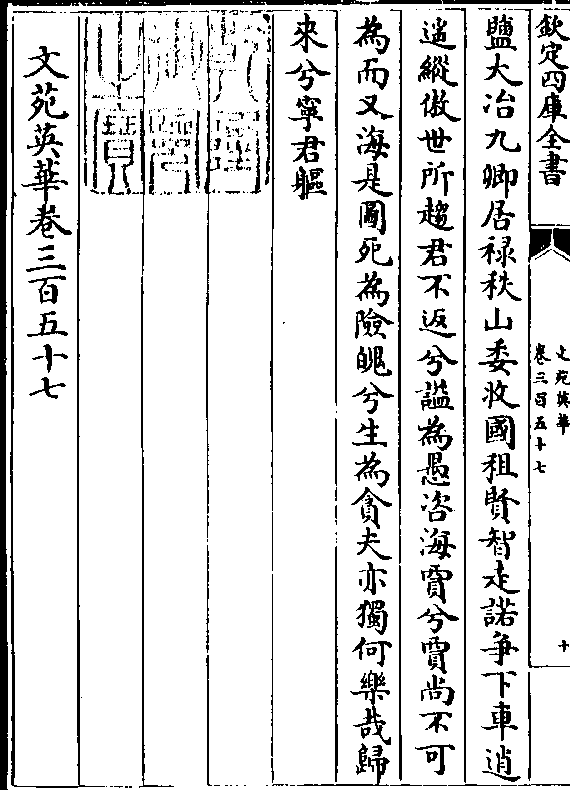 欽定四庫全書
文苑英華
卷三百五十七
十
鹽大冶九卿居禄秩山委收國租賢智走諾爭下車逍
遥縱傲世所趨君不返兮謚為愚咨海賈兮賈尚不可
為而又海是圖死為險魄兮生為貪夫亦獨何樂哉歸
來兮寧君軀
文苑英華卷三百五十七